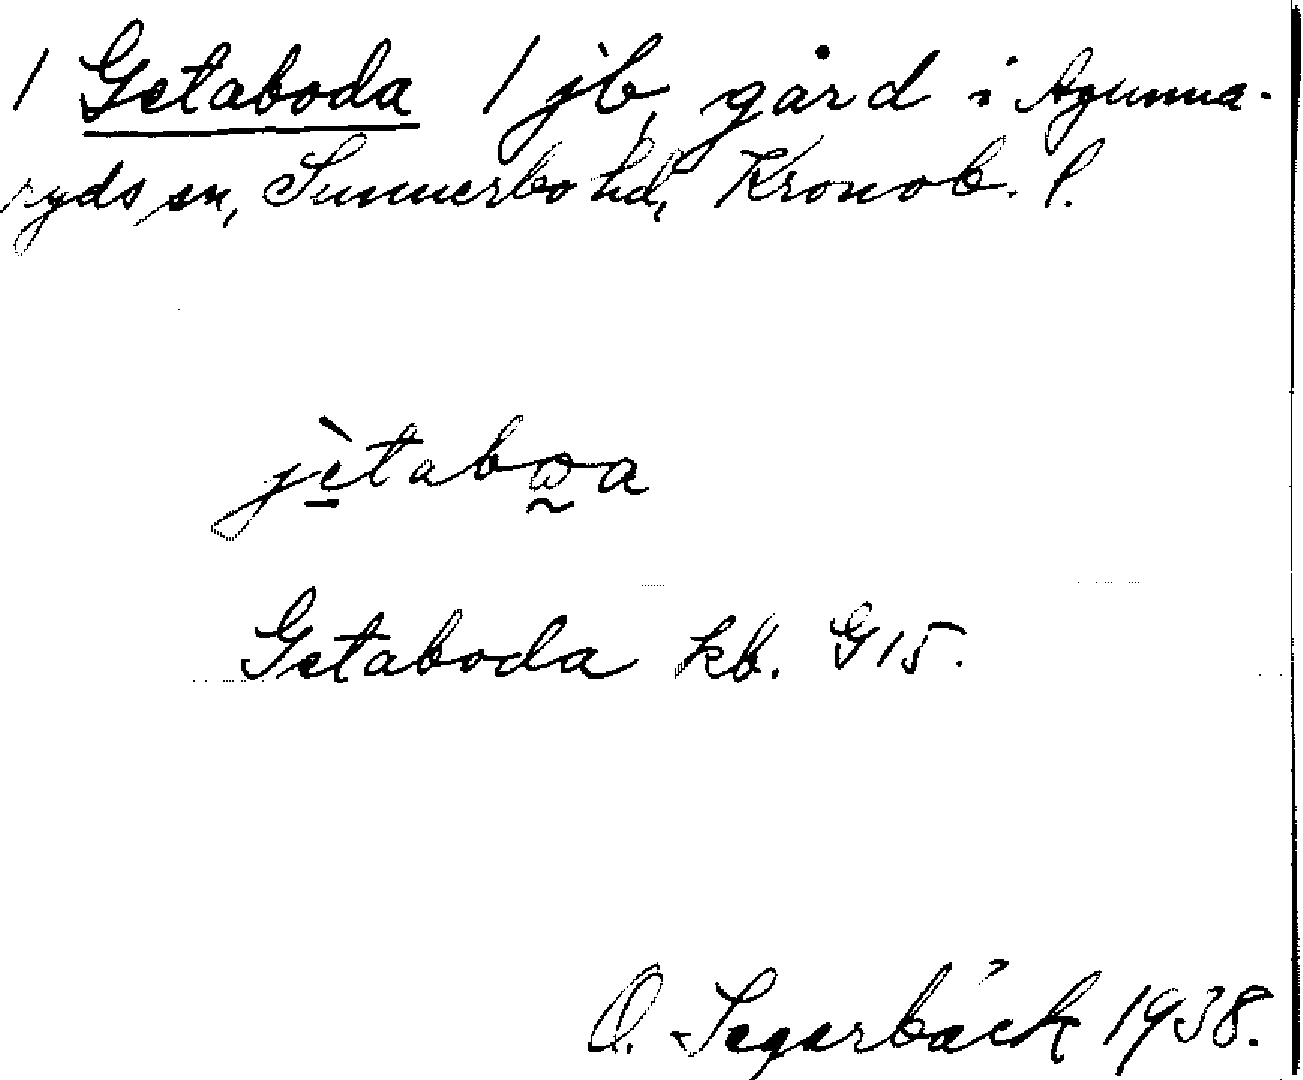 1 Getaboda 1 jb, gård i Agunna-
ryds sn, Sunnerbo hd, Kronob. l.
jètabωa
Getaboda kb. G15.
O. Segerbäck 1938.